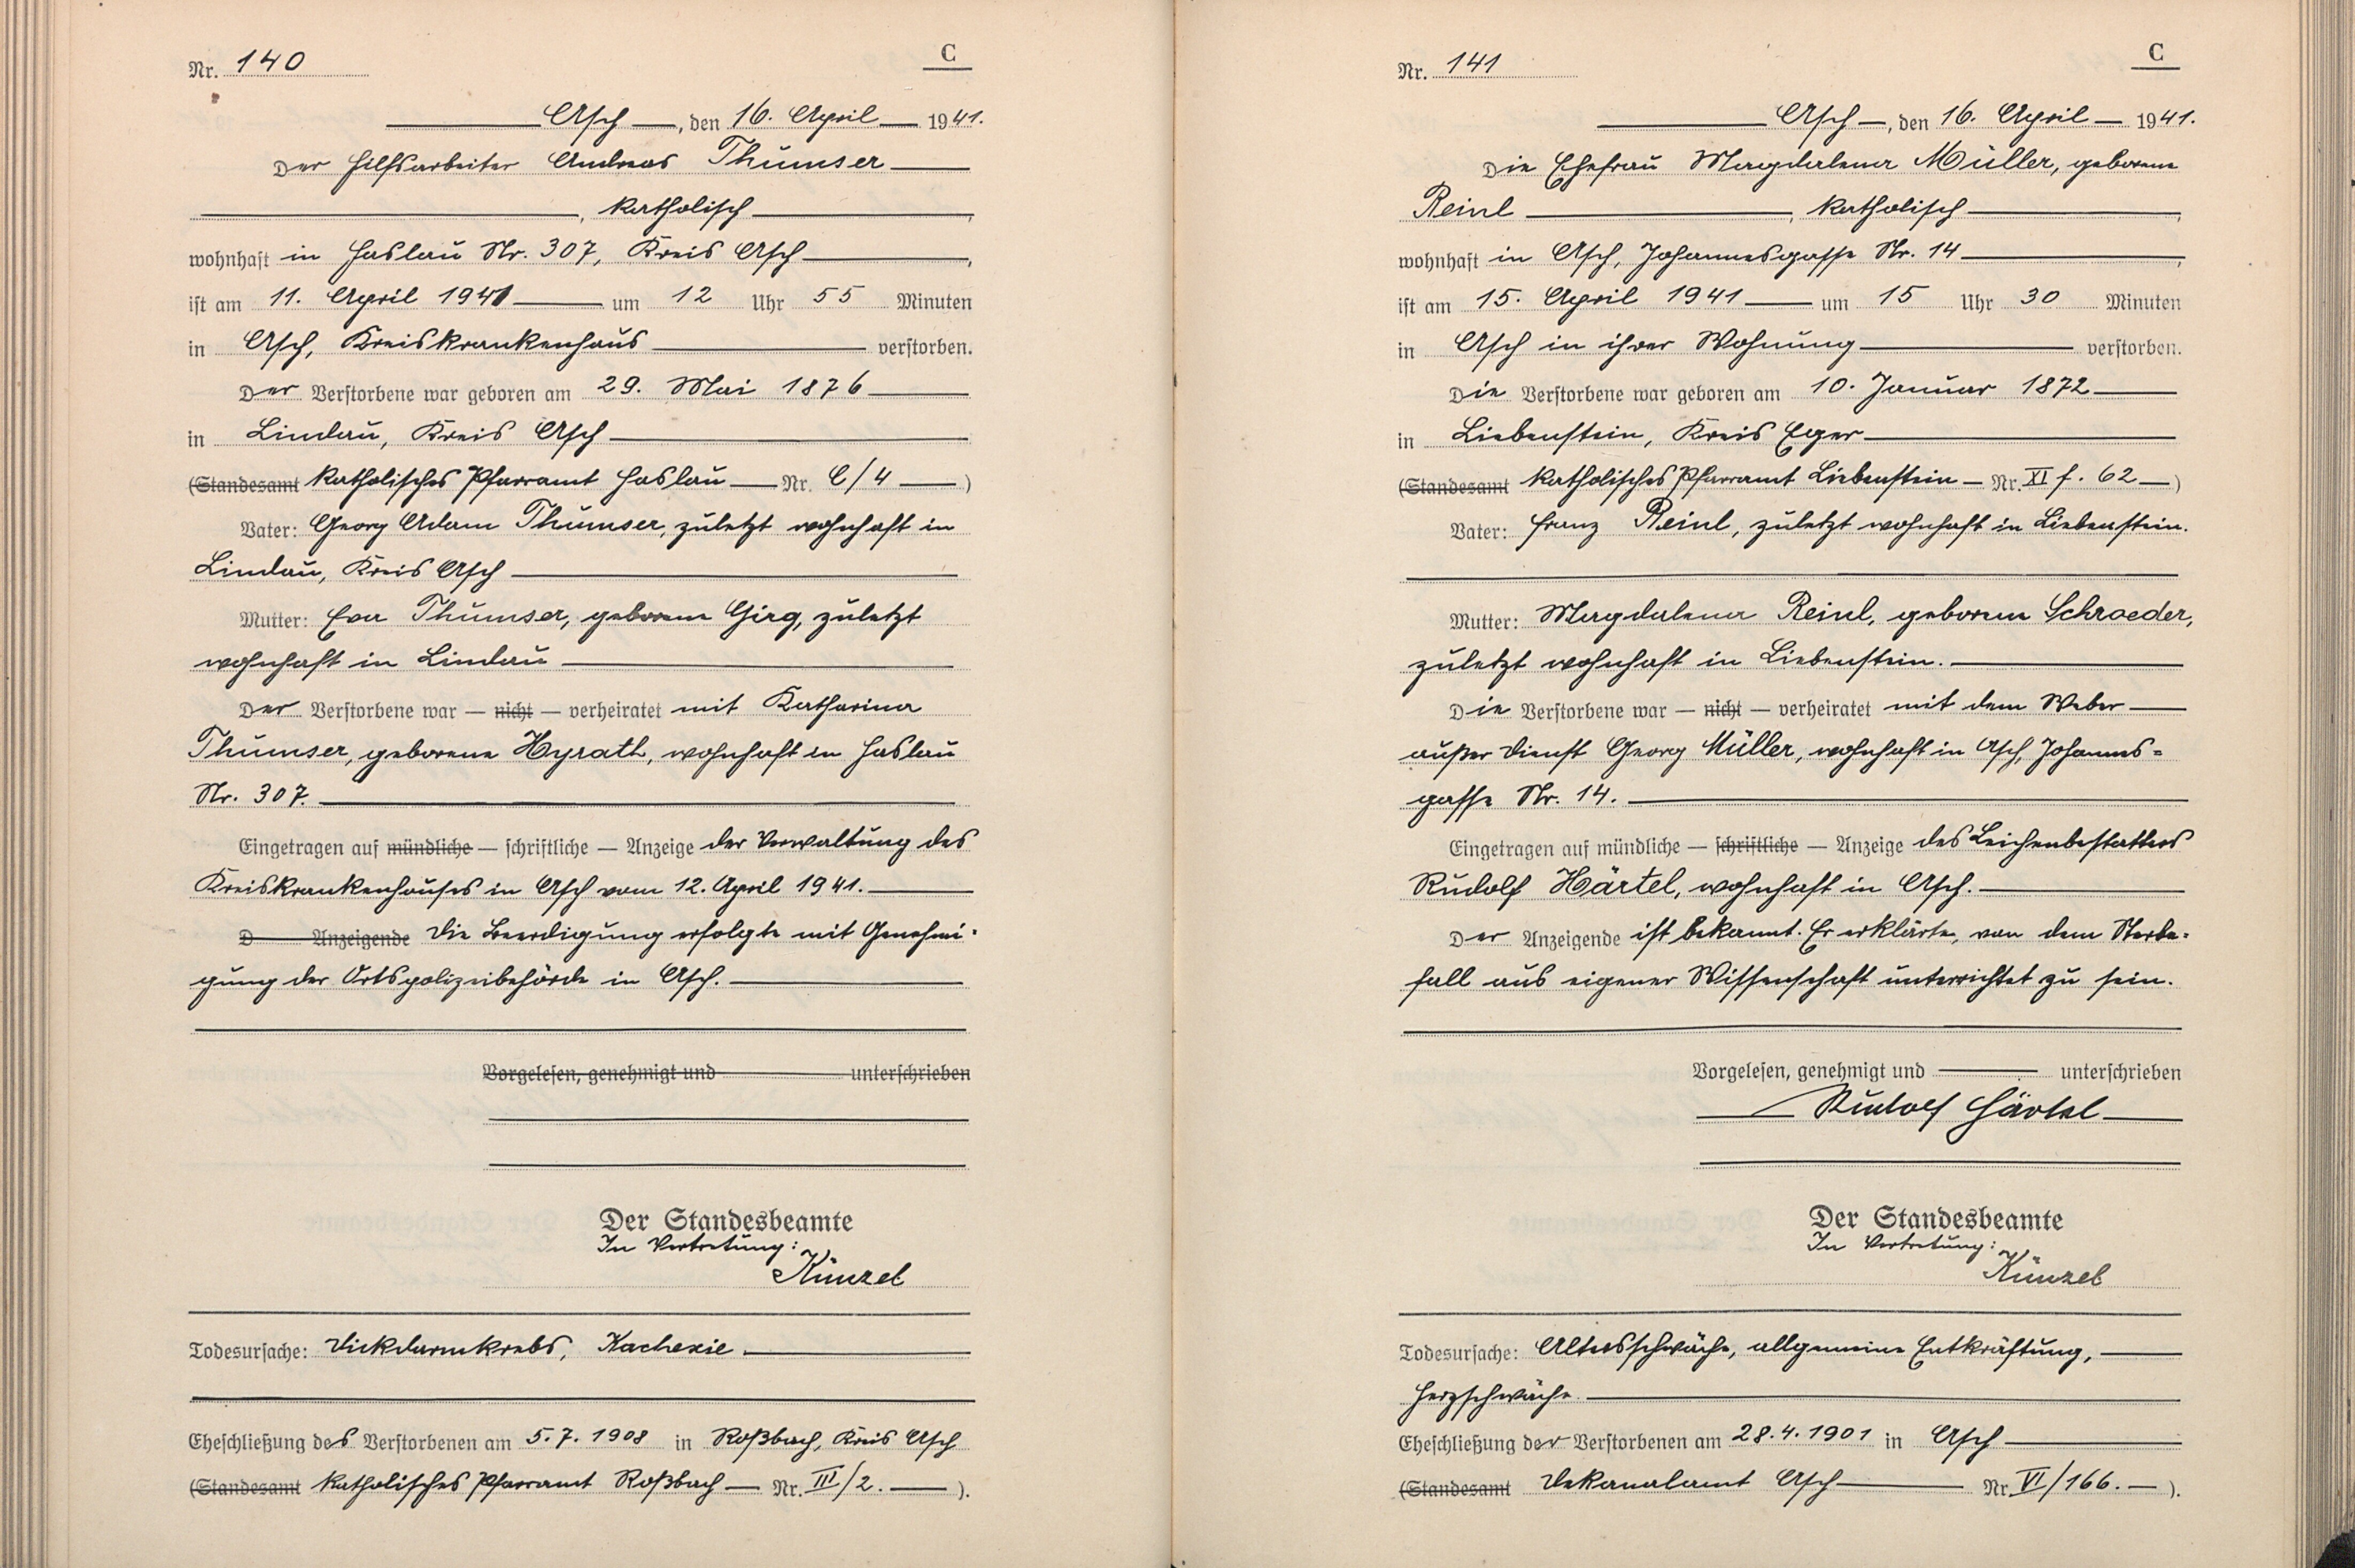 Nr. 140
C
Asch, den 16. April 1941.
Der Hilfsarbeiter Andreas Thümser
, katholisch,
wohnhaft in Haslau Nr. 307, Kreis Asch,
ist am 11. April 1941 um 12 Uhr 55 Minuten
in Asch, Kreiskrankenhaus verstorben.
Der Verstorbene war geboren am 29. Mai 1876
in Lindau, Kreis Asch
(Standesamt katholisches Pfarramt Haslau Nr. C/4)
Vater: Georg Adam Thümser, zuletzt wohnhaft in
Lindau, Kreis Asch
Mutter: Eva Thümser, geborene Girg, zuletzt
wohnhaft in Lindau
Der Verstorbene war — nicht — verheiratet mit Katharina
Thümser, geborene Hyrath, wohnhaft in Haslau
Nr. 307.
Eingetragen auf mündliche — schriftliche — Anzeige der Verwaltung des
Kreiskrankenhauses in Asch vom 12. April 1941.
D Anzeigende Die Beerdigung erfolgte mit Genehmi-
gung der Ortspolizeibehörde in Asch.
Vorgelesen, genehmigt und unterschrieben
Der Standesbeamte
In Vertretung:
Künzel
Todesursache: Dickdarmkrebs, Kachexie.
Eheschließung des Verstorbenen am 5.7.1908 in Roßbach, Kreis Asch
(Standesamt katholisches Pfarramt Roßbach Nr. III/2.).
Nr. 141
C
Asch, den 16. April 1941.
Die Ehefrau Magdalena Müller, geborene
Reinl, katholisch,
wohnhaft in Asch, Johannesgasse Nr. 14,
ist am 15. April 1941 um 15 Uhr 30 Minuten
in Asch in ihrer Wohnung verstorben.
Die Verstorbene war geboren am 10. Januar 1872
in Liebenstein, Kreis Eger
(Standesamt katholisches Pfarramt Liebenstein Nr. XI f. 62)
Vater: Franz Reinl, zuletzt wohnhaft in Liebenstein.
Mutter: Magdalena Reinl, geborene Schroeder,
zuletzt wohnhaft in Liebenstein.
Die Verstorbene war — nicht — verheiratet mit dem Weber
außer Dienst Georg Müller, wohnhaft in Asch, Johannes-
gasse Nr. 14.
Eingetragen auf mündliche — schriftliche — Anzeige des Leichenbestatters
Rudolf Härtel, wohnhaft in Asch.
Der Anzeigende ist bekannt. Er erklärte, von dem Sterbe-
fall aus eigener Wissenschaft unterrichtet zu sein.
Vorgelesen, genehmigt und unterschrieben
Rudolf Härtel
Der Standesbeamte
In Vertretung:
Künzel
Todesursache: Altersschwäche, allgemeine Entkräftung,
Herzschwäche.
Eheschließung der Verstorbenen am 28.4.1901 in Asch
(Standesamt Dekanalamt Asch Nr. VI/166.).